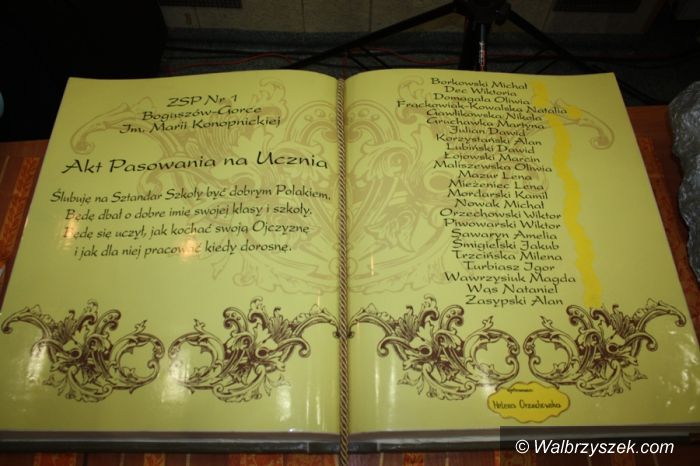 ZSP Nr 1
Boguszów-Gorce
Im. Marii Konopnickiej
Akt Pasowania na Ucznia
Ślubuję na Sztandar Szkoły być dobrym Polakiem,
Będę dbał o dobre imię swojej klasy i szkoły,
Będę się uczył, jak kochać swoją Ojczyznę
i jak dla niej pracować kiedy dorosnę.
Borkowski Michał
Dec Wiktoria
Domagała Oliwia
Frąckowiak-Kowalska Natalia
Gawlikowska Nikola
Gruchawka Martyna
Julian Dawid
Korzystański Alan
Lubiński Dawid
Łojowski Marcin
Maliszewska Oliwia
Mazur Lena
Mieżeniec Lena
Mordarski Kamil
Nowak Michał
Orzechowski Wiktor
Piwowarski Wiktor
Sawaryn Amelia
Śmigielski Jakub
Trzcińska Milena
Turbiasz Igor
Wawrzysiuk Magda
Wąs Nataniel
Zasypski Alan
wychowawca:
Helena Orzechowska
© Walbrzyszek.com